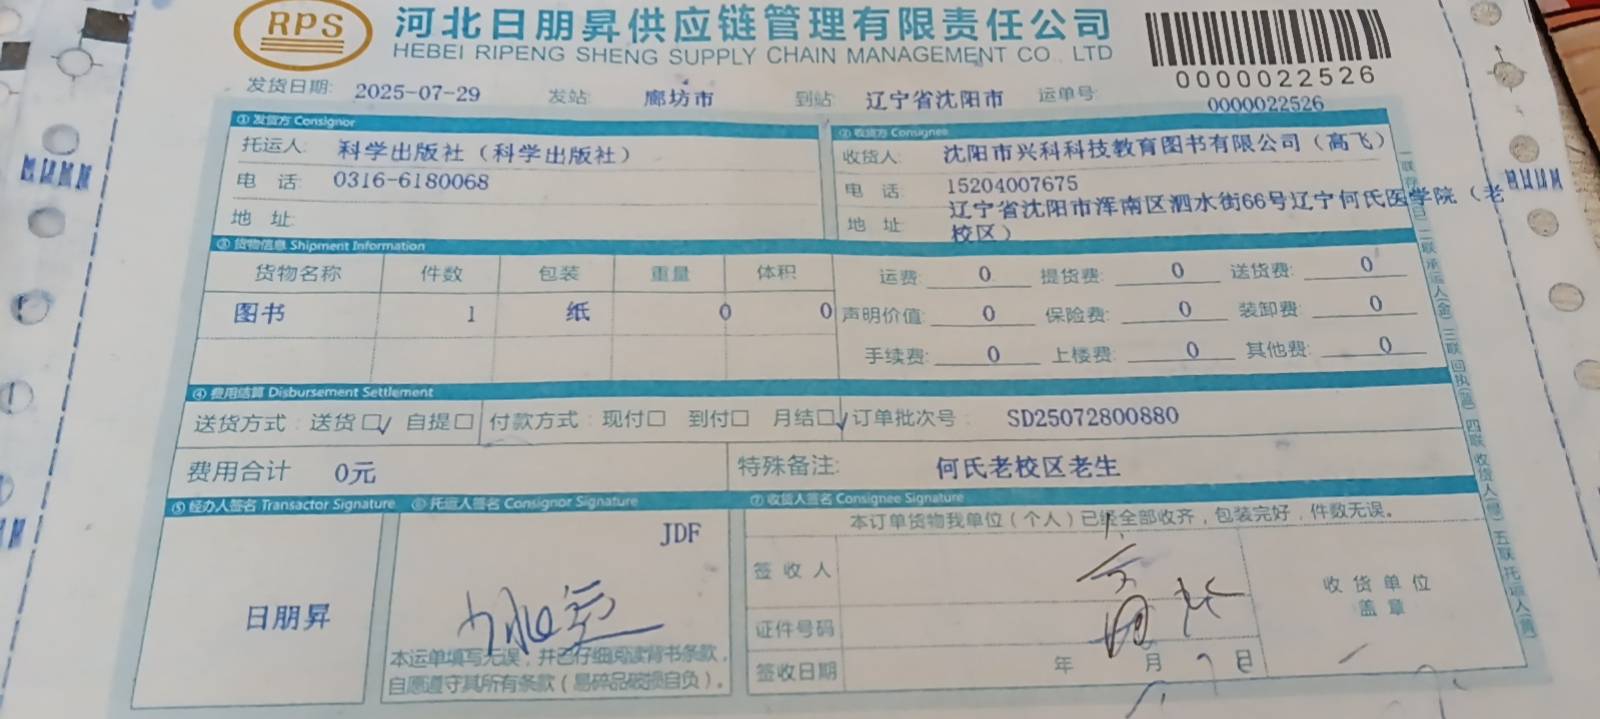 RPS
河北日朋昇供应链管理有限责任公司
HEBEI RIPENG SHENG SUPPLY CHAIN MANAGEMENT CO., LTD
0000022526
发货日期: 2025-07-29 发站: 廊坊市 到站: 辽宁省沈阳市 运单号: 0000022526
① 发货方 Consignor
② 收货方 Consignee
托运人: 科学出版社（科学出版社）
收货人: 沈阳市兴科科技教育图书有限公司（高飞）
电 话: 0316-6180068
电 话: 15204007675
地 址:
地 址: 辽宁省沈阳市浑南区泗水街66号辽宁何氏医学院（老
校区）
③ 货物信息 Shipment Information
货物名称 件数 包装 重量 体积
运费: 0 提货费: 0 送货费: 0
图书 1 纸 0 0
声明价值: 0 保险费: 0 装卸费: 0
手续费: 0 上楼费: 0 其他费: 0
④ 费用结算 Disbursement Settlement
送货方式: 送货□√ 自提□ 付款方式: 现付□ 到付□ 月结□√ 订单批次号: SD25072800880
费用合计 0元 特殊备注: 何氏老校区老生
⑤ 经办人签名 Transactor Signature
⑥ 托运人签名 Consignor Signature
⑦ 收货人签名 Consignee Signature
日朋昇
JDF
本运单填写无误，并已仔细阅读背书条款，
自愿遵守其所有条款（易碎品破损自负）。
本订单货物我单位（个人）已经全部收齐，包装完好，件数无误。
签 收 人
证件号码
签收日期 年 月 日
收 货 单 位
盖 章